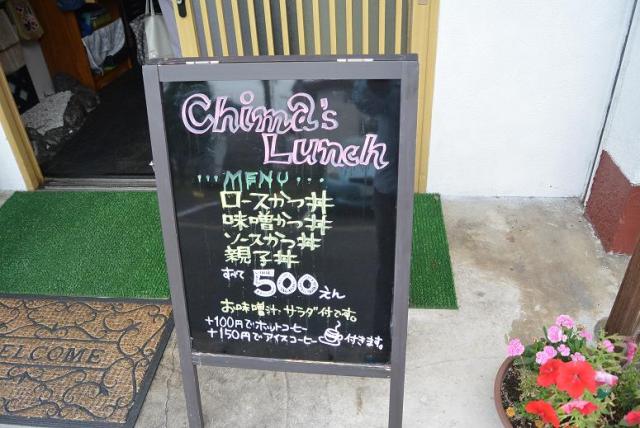 Chima's
Lunch
MENU
ロースかつ丼
味噌かつ丼
ソースかつ丼
親子丼
すべて 500えん
お味噌汁・サラダ付です。
+100円でホットコーヒー
+150円でアイスコーヒー 付きます。
WELCOME